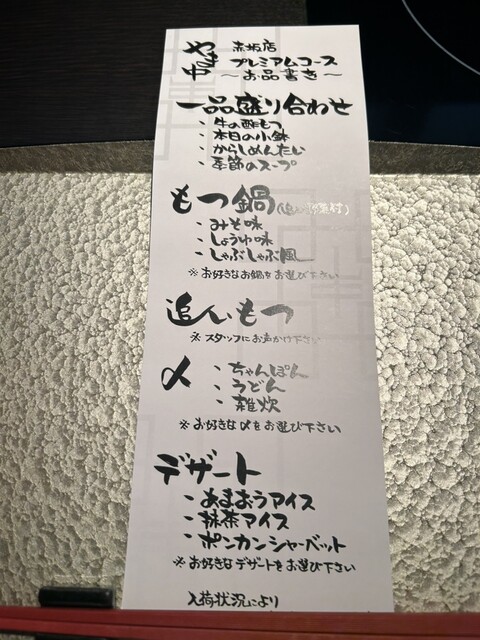 やま中
赤坂店
プレミアムコース
〜お品書き〜
一品盛り合わせ
・牛の酢もつ
・本日の小鉢
・からしめんたい
・季節のスープ
もつ鍋
・みそ味
・しょうゆ味
・しゃぶしゃぶ風
※お好きなお鍋をお選び下さい
追いもつ
※スタッフにお声かけ下さい
〆
・ちゃんぽん
・うどん
・雑炊
※お好きな〆をお選び下さい
デザート
・あまおうアイス
・抹茶アイス
・ポンカンシャーベット
※お好きなデザートをお選び下さい
入荷状況により